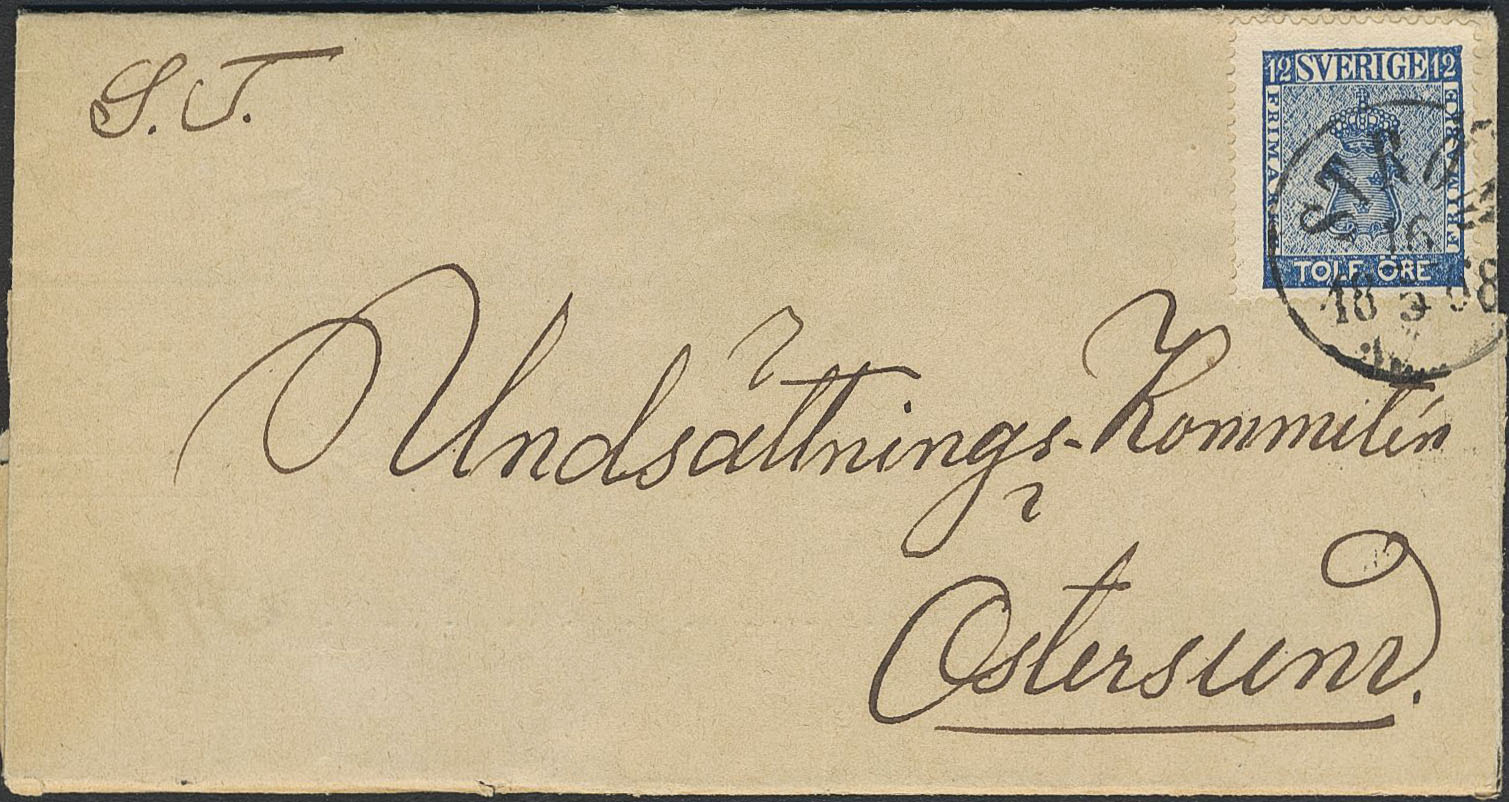 S. T.
12 SVERIGE 12
FRIMÄRKE
FRIMÄRKE
TOLF ÖRE
STRÖM
16
18 5 68
Undsättnings-Kommitén
i
Östersund.